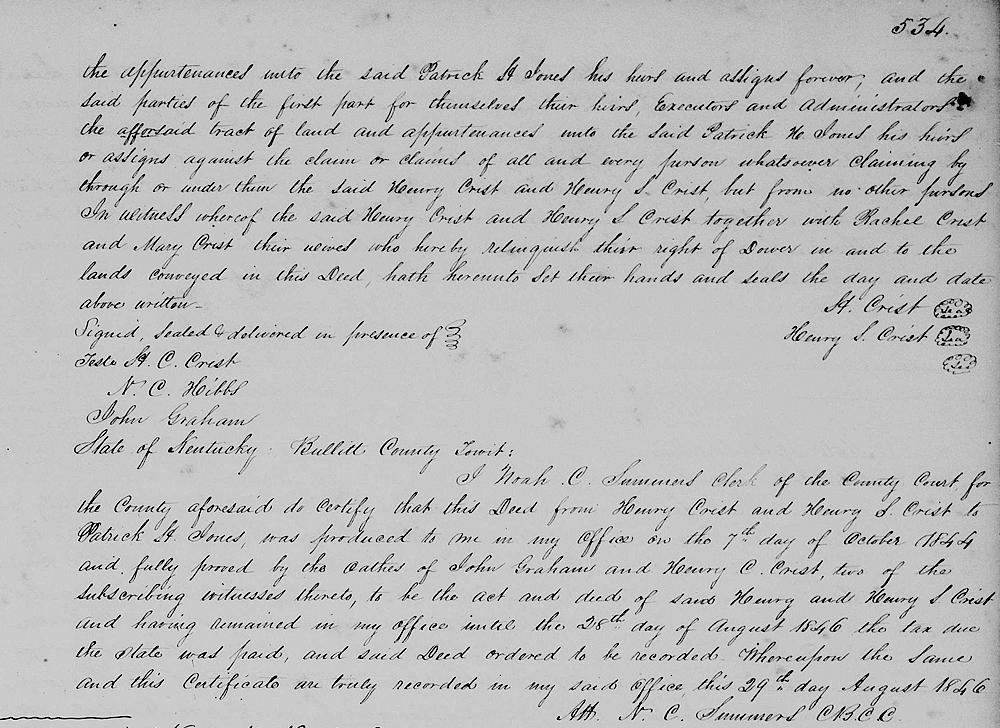 534.
the appurtenances unto the said Patrick H Jones his heirs and assigns forever, and the
said parties of the first part for themselves their heirs, Executors and Administrators
the afforsaid tract of land and appurtenances unto the said Patrick H Jones his heirs
or assigns against the claim or claims of all and every person whatsoever claiming by
through or under them the said Henry Crist and Henry S. Crist, but from no other persons
In witness whereof the said Henry Crist and Henry S Crist together with Rachel Crist
and Mary Crist their wives who hereby relinquish their right of Dower in and to the
lands conveyed in this Deed, hath hereunto set their hands and seals the day and date
above written—
H. Crist Seal
Signed, sealed & delivered in presence of
Henry S. Crist Seal
Teste H. C. Crist
Seal
N. C. Hibbs
John Graham
State of Kentucky. Bullitt County Towit:
I Noah C. Summers Clerk of the County Court for
the County aforesaid do certify that this Deed from Henry Crist and Henry S. Crist to
Patrick H Jones, was produced to me in my Office on the 7th day of October 1844
and fully proved by the oathes of John Graham and Henry C. Crist, two of the
subscribing witnesses thereto, to be the act and deed of said Henry and Henry S. Crist
and having remained in my office until the 28th day of August 1846 the tax due
the state was paid, and said Deed ordered to be recorded. Whereupon the same
and this Certificate are truly recorded in my said Office this 29th day August 1846
Att. N. C. Summers C.B.C.C.